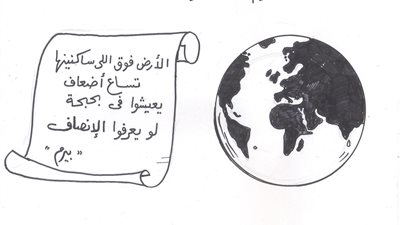 الأرض فوق اللى ساكنينها
تساع أضعاف
يعيشوا فى بحبحة
لو يعرفوا الإنصاف
"بيرم"